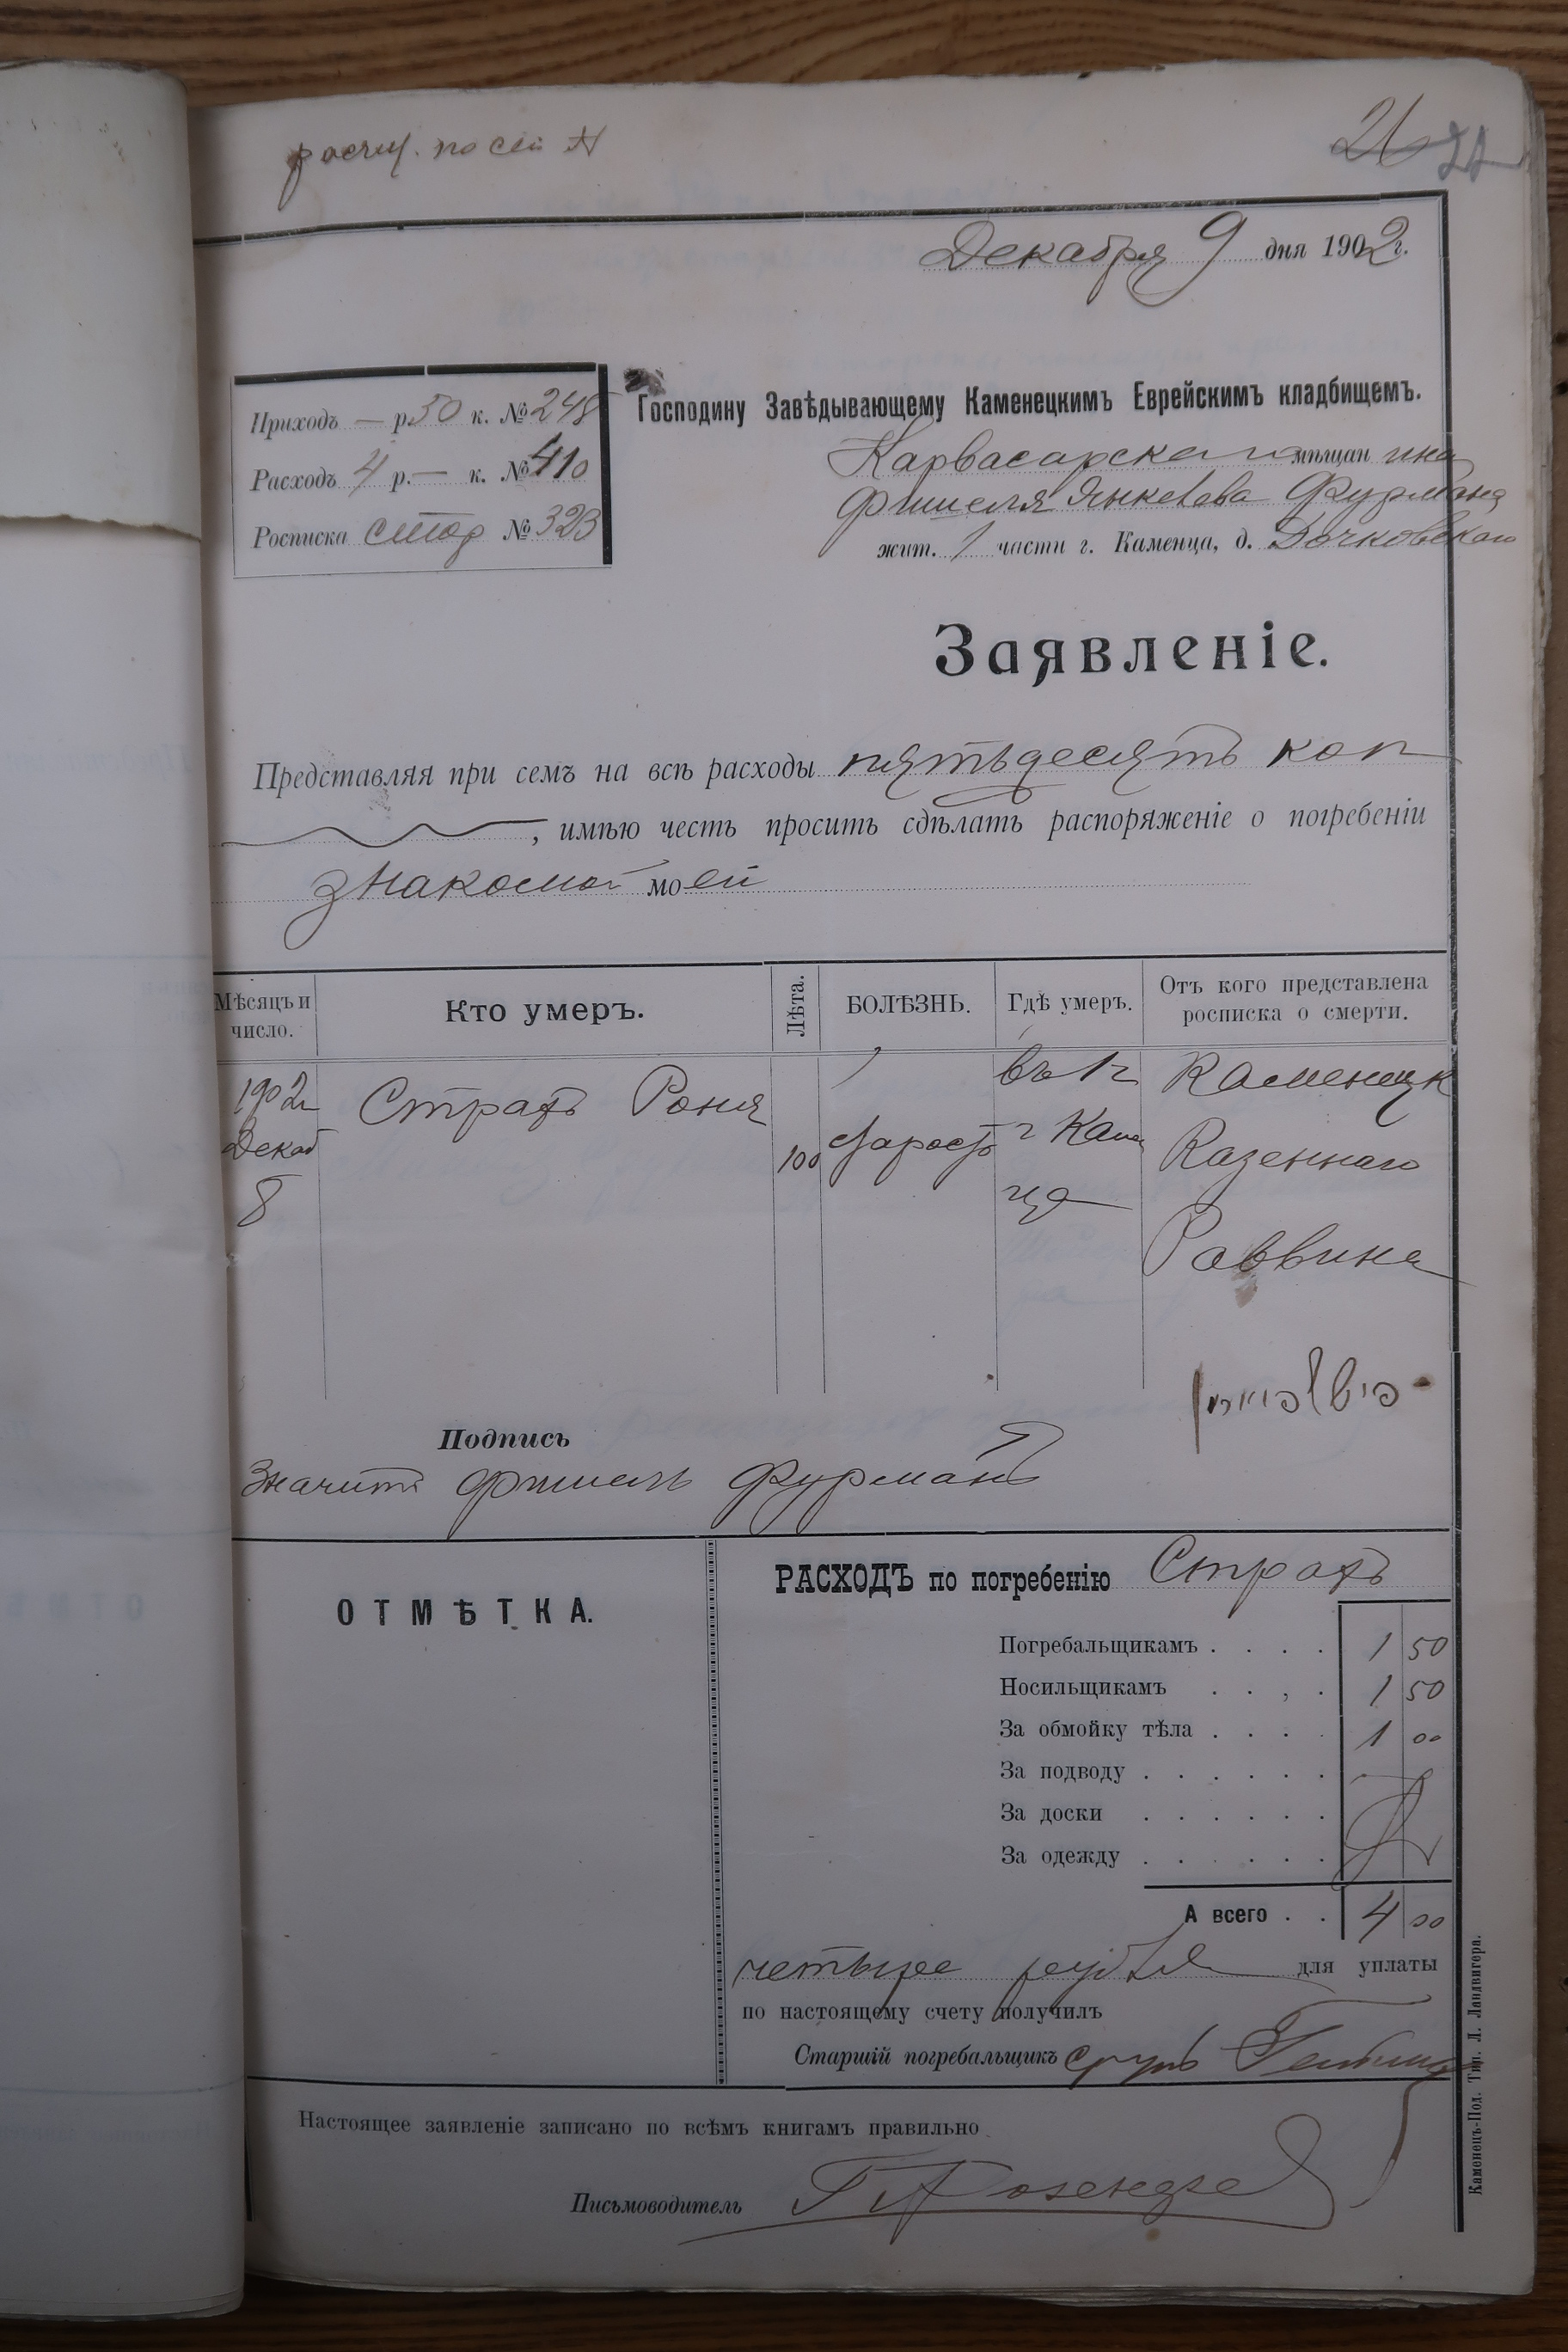 расчит. по сей
26
Декабря 9 дня 1902 г.
Приходъ — р. 50 к. № 248
Расходъ 4 р. — к. № 410
Росписка стор № 323
Господину Завѣдывающему Каменецкимъ Еврейскимъ кладбищемъ.
Карвасарскаго мѣщанина
Фишеля Янкелева Фурмана
жит. 1 части г. Каменца, д. Дочковскаго
Заявленіе.
Представляя при семъ на всѣ расходы пятьдесятъ коп
, имѣю честь просить сдѣлать распоряженіе о погребеніи
знакомой моей
Мѣсяцъ и число. Кто умеръ. Лѣта. БОЛѢЗНЬ. Гдѣ умеръ. Отъ кого представлена росписка о смерти.
1902 Страхъ Роня 100 старость въ г Каменецк
Декаб г Каме Казеннаго
8 нца Раввина
פישל פורמן
Подпись
Значитъ Фишель Фурманъ
ОТМѢТКА.
РАСХОДЪ по погребенію Страхъ
Погребальщикамъ . . . . 1 50
Носильщикамъ . . , . 1 50
За обмойку тѣла . . . . 1 00
За подводу . . . . . .
За доски . . . . . .
За одежду . . . . . .
А всего . . 4 00
четыре рубля для уплаты
по настоящему счету получилъ
Старшій погребальщикъ
Настоящее заявленіе записано по всѣмъ книгамъ правильно
Письмоводитель
Каменецъ-Под. Тип. Л. Ландвигера.